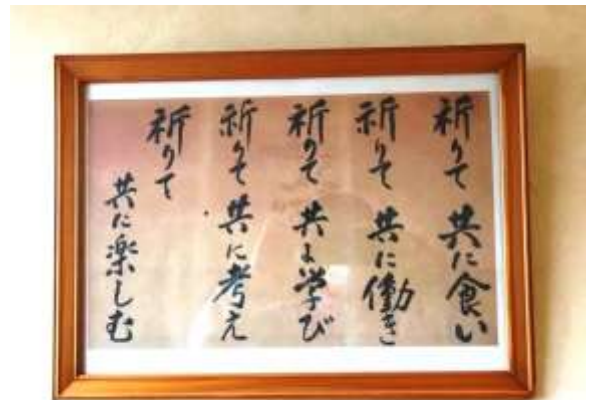 祈りて 共に食い
祈りて 共に働き
祈りて 共に学び
祈りて 共に考え
祈りて 共に楽しむ